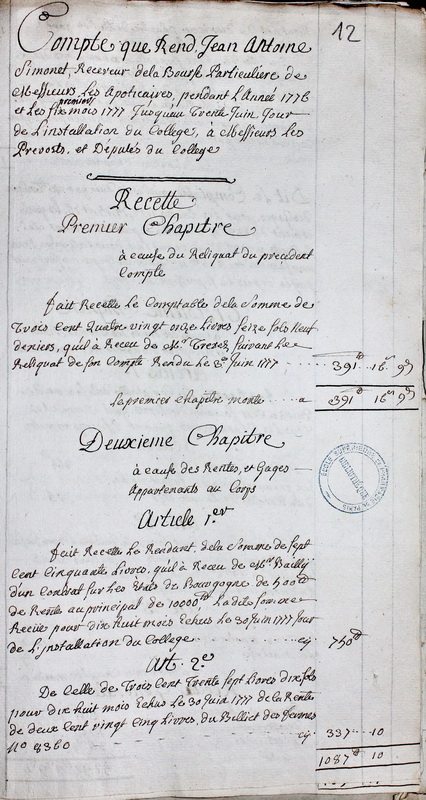 12
Compte que Rend Jean Antoine
Simonet, Receveur dela Bourse Particuliere de
Messieurs Les Apoticaires, pendant L'Année 1776
et Les six premiers mois 1777 Jusqu'au Trente Juin Jour
de L'installation du College, à Messieurs Les
Prevosts, et Députés du College
Recette
Premier Chapitre
à cause du Reliquat du precedent
Compte
fait Recette Le Comptable dela Somme de
Trois Cent Quatre vingt onze Livres seize sols neuf
deniers, qu'il à Receu de Mr Trevez suivant Le
Reliquat de son Compte Rendu Le 3e Juin 1777 391 16 9
Le premier chapitre monte a 391 16 9
Deuxieme Chapitre
à cause des Rentes, et Gages
Appartenants au Corps
Article 1.er
fait Recette Le Rendant, dela Somme de sept
Cent Cinquante Livres, qu'il à Receu de Mr Bailly
d'un Contrat sur Les Etats de Bourgogne de 500tt
de Rente au principal de 10000tt Ladite somme
Recüe pour dix huit mois Echus Le 30 Juin 1777 Jour
de L'installation du College cy 750tt
Art. 2.e
De Celle de Trois Cent Trente sept Livres dix sols
pour dix huit mois Echus Le 30 Juin 1777 de La Rente
de deux cent vingt Cinq Livres, du Billiet des fermes
No 8360 cy 337 10
1087tt 10